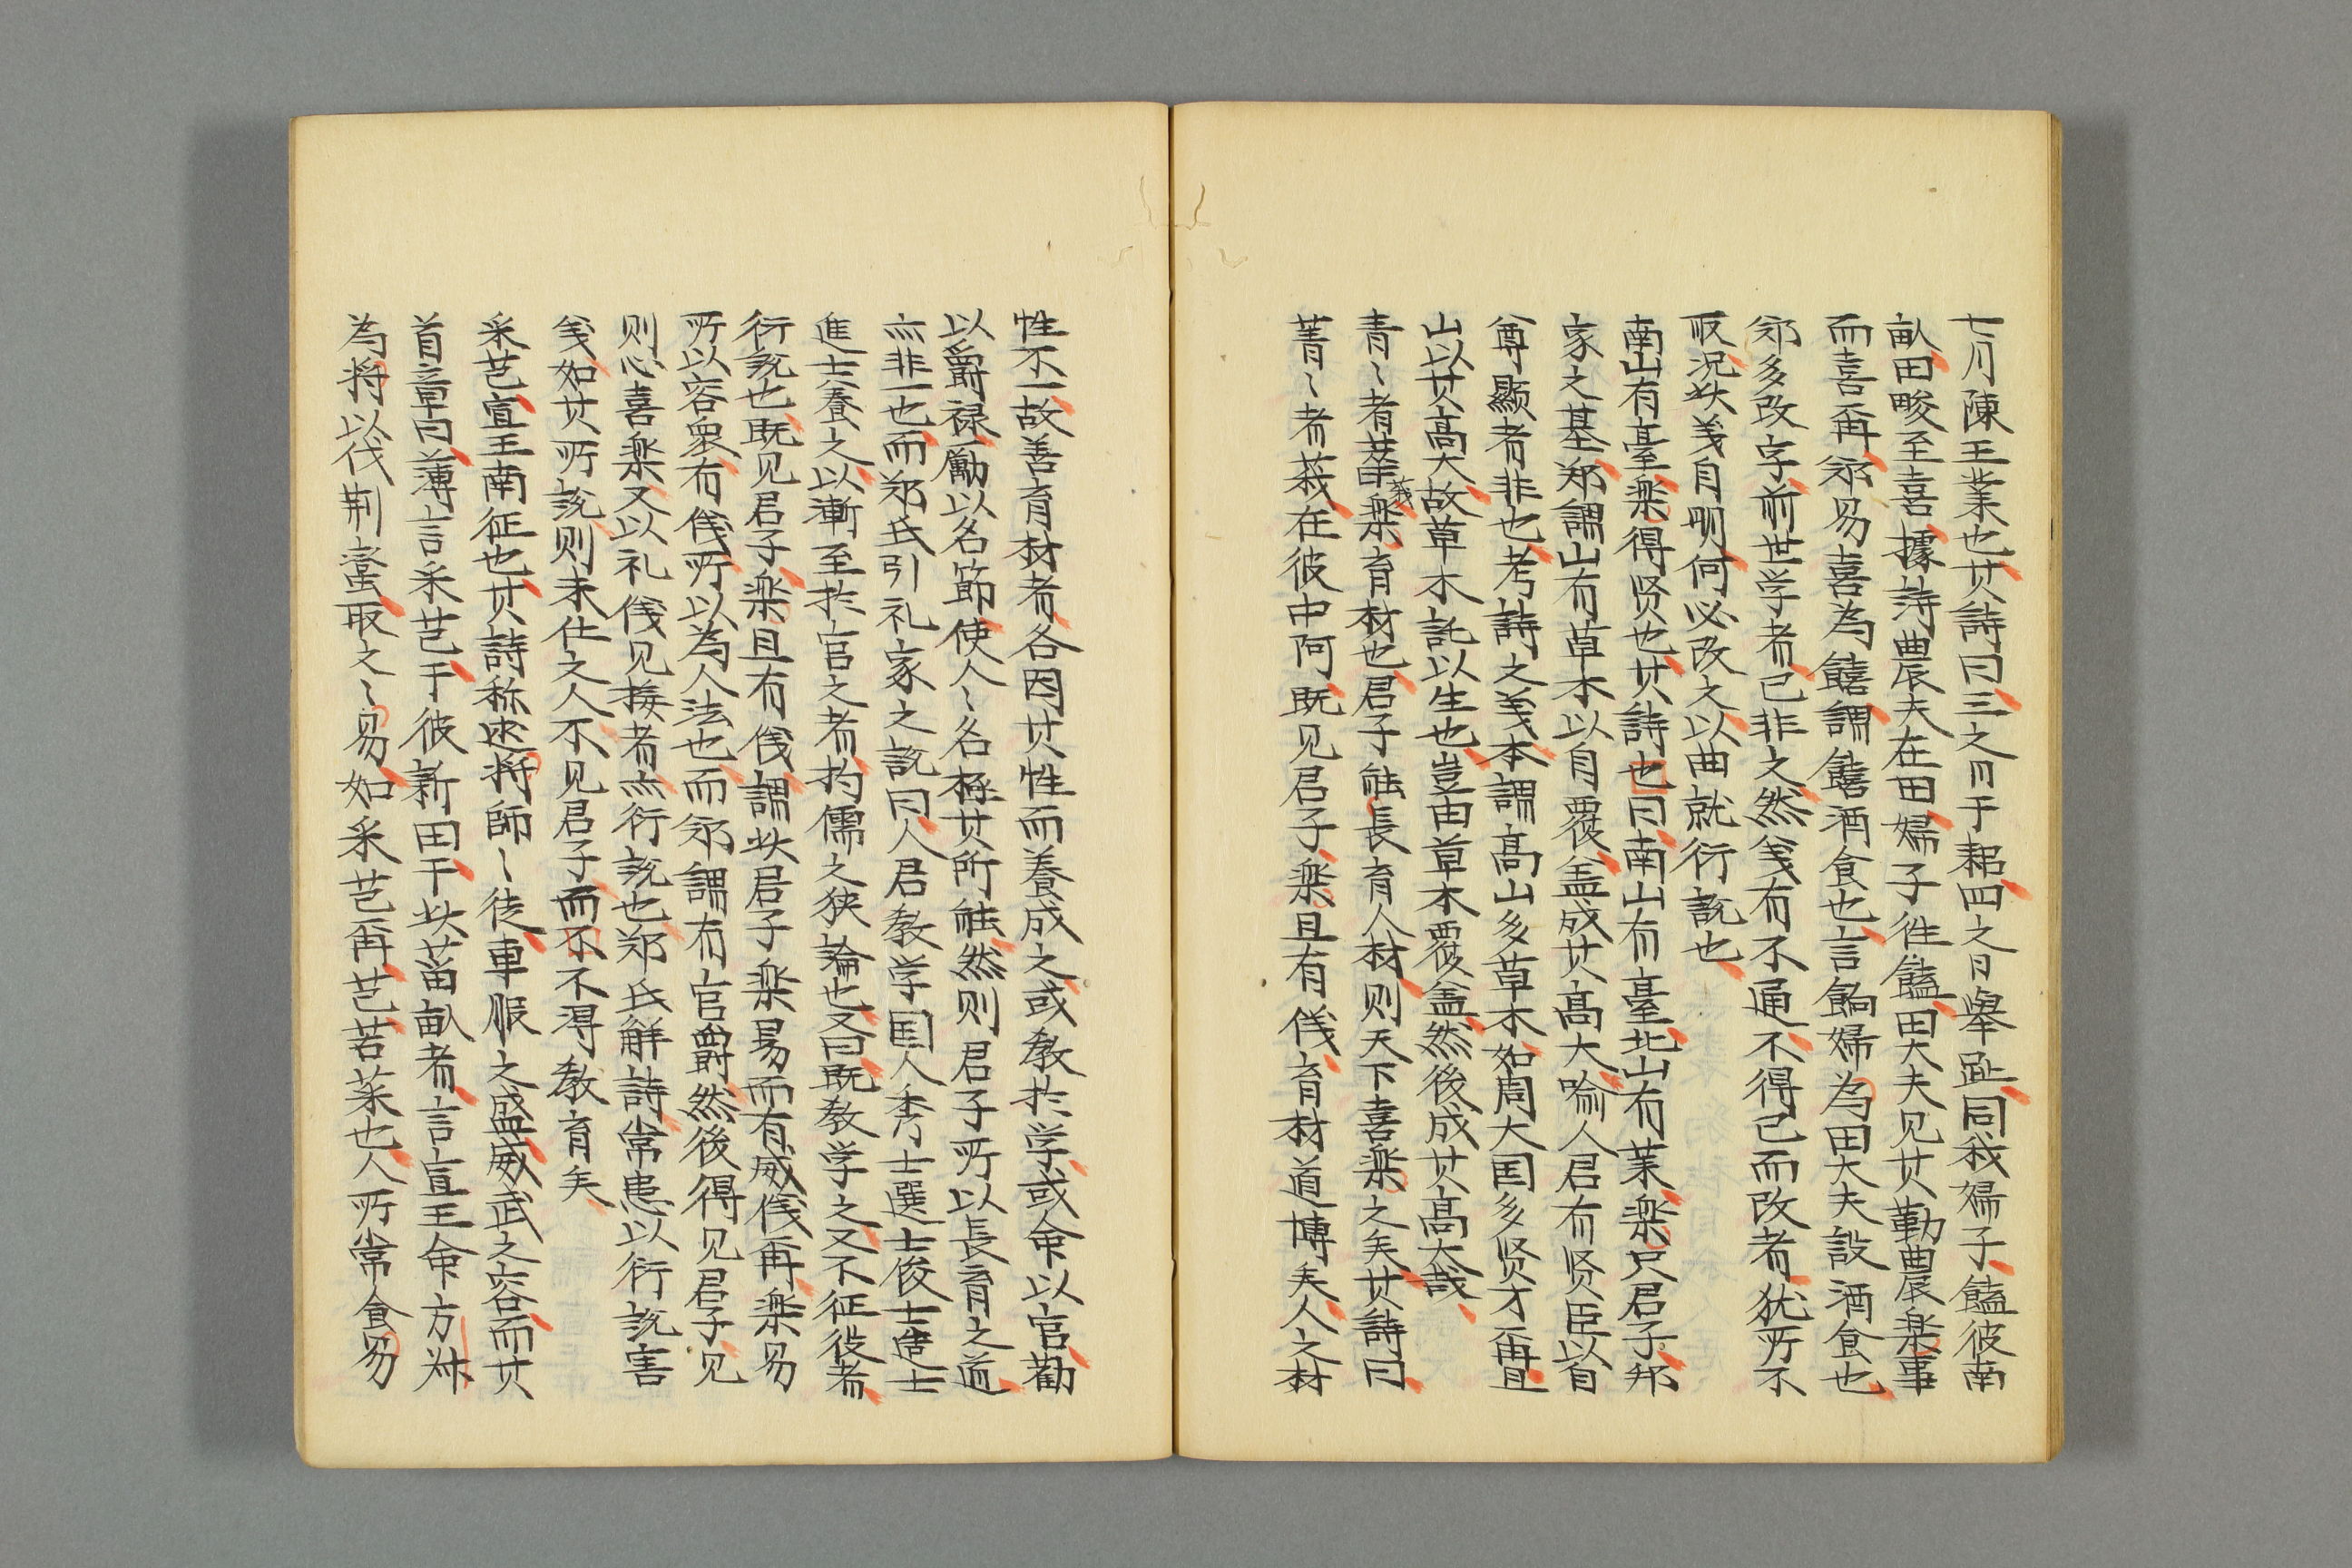 七月陳王業也其詩曰三之日于耜四之日擧趾同我婦子饁彼南
畝田畯至喜據詩農夫在田婦子徃饁田大夫见其勤農楽事
而喜再郑易喜為饎謂饎酒食也言餉婦為田大夫設酒食也
郑多改字前世学者已非之然義有不通不得已而改者犹所不
取况此義自明何必改之以曲就衍説也
南山有臺楽得贤也其詩也曰南山有臺北山有莱楽只君子邦
家之基郑謂山有草木以自覆盖成其高大喻人君有贤臣以自
尊顯者非也考詩之義本謂高山多草木如周大国多贤才再且
山以其高大故草木託以生也豈由草木覆盖然後成其高大哉
青〻者莪楽育材也君子能長育人材则天下喜楽之矣其詩曰
菁〻者莪在彼中阿既见君子楽且有儀育材道博矣人之材
性不一故善育材者各因其性而養成之或教扵学或命以官勸
以爵禄勵以名節使人〻名極其所能然则君子所以長育之道
亦非一也而郑氏引礼家之説曰人君教学国人秀士選士俊士造士
進士養之以漸至扵官之者拘儒之狭論也又曰既教学之又不征役者
衍説也既见君子楽且有儀謂此君子楽易而有威儀再楽易
所以容衆有儀所以為人法也而郑謂有官爵然後得见君子见
则心喜楽又以礼儀见接者亦衍説也郑氏觧詩常患以衍説害
義如其所説则未仕之人不见君子而不不得教育矣
采芑宣王南征也其詩称述将師〻徒車服之盛威武之容而其
首章曰薄言采芑于彼新田于此菑畝者言宣王命方叔
為将以伐荆蛮取之〻易如采芑再芑苦菜也人所常食易